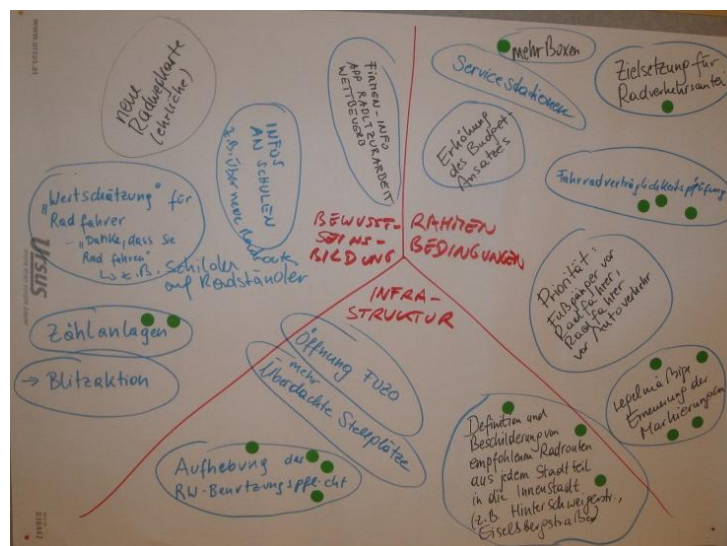 www.ursus.at
neue
Radwegkarte
(ehrliche)
INFOS
AN SCHULEN
z.B. über neue Radroute
FIRMEN-INFO
APP RADLT ZUR ARBEIT
WETTBEWERB
„Wertschätzung“ für
Radfahrer
... „Danke, dass Sie
Rad fahren“
z.B. Schilder
auf Radständer
URSUS
Zählanlagen
→ Blitzaktion
BEWUSST-
SEINS-
BILDUNG
RAHMEN
BEDINGUNGEN
INFRA-
STRUKTUR
mehr Boxen
Servicestationen
Zielsetzung für
Radverkehrsanteil
Erhöhung
des Budget-
Ansatzes
Fahrradverträglichkeitsprüfung
Priorität:
Fußgänger vor
Radfahrer,
Radfahrer
vor Autoverkehr
regelmäßige
Erneuerung der
Markierungen
Öffnung FUZO
mehr
Überdachte Stellplätze
Aufhebung der
RW-Benutzungspflicht
Definition und
Beschilderung von
empfohlenen Radrouten
aus jedem Stadtteil
in die Innenstadt
(z.B. Hinterschweigerstr.,
Eiselsbergstraße)